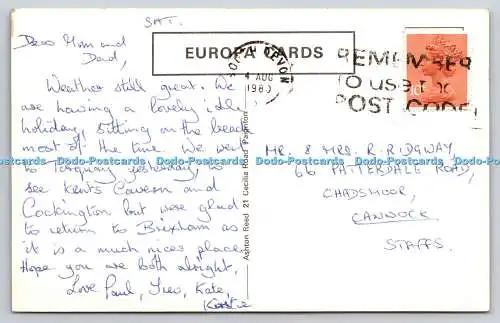 SAT.
Dear Mum and
Dad,
Weather still great. We
are having a lovely idle
holiday, sitting on the beach
most of the time. We went
to Torquay yesterday, to
see Kents Cavern and
Cockington but were glad
to return to Brixham as
it is a much nicer place.
Hope you are both alright,
Love Paul, Trev, Kate,
Kirstie
EUROPA CARDS
SOUTH DEVON
4 AUG
1980
REMEMBER
TO USE THE
POST CODE
Ashton Reed 21 Cecilia Road, Paignton
MR. & MRS. R. RIDGWAY,
66 PATTERDALE ROAD,
CHADSMOOR,
CANNOCK,
STAFFS.
Dodo-Postcards Dodo-Postcards Dodo-Postcards Dodo-Postcards Dodo-Postcards